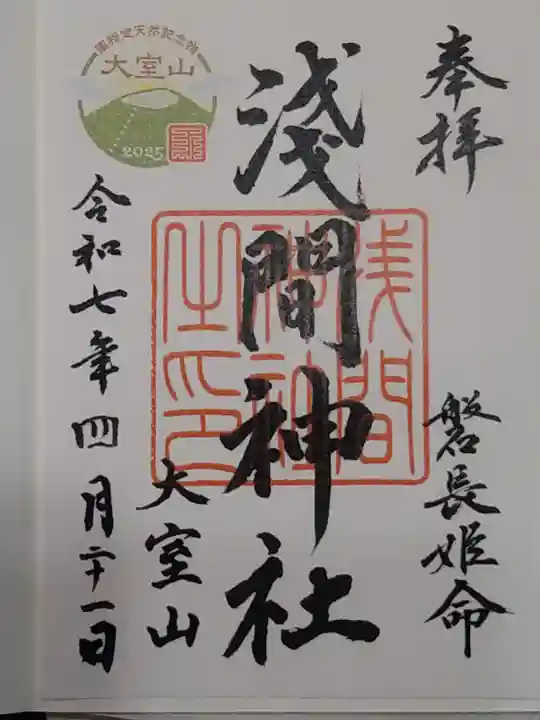 奉拝
磐長姫命
淺間神社
浅間
神社
之印
大室山
令和七年四月二十一日
国指定天然記念物
大室山
2025